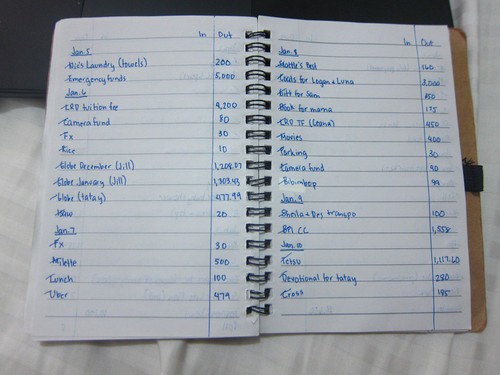 In Out
Jan. 5
Bix's Laundry (towels) 200
Emergency funds 5,000
Jan. 6
tuition fee 4,200
Camera fund 80
Fx 30
Rice 10
Globe December (Jill)
Globe January (Jill) 1,303.43
Globe (tatay) 477.99
20
Jan. 7
Fx 30
500
Lunch 100
Uber 479
In Out
Jan. 8
Seattle's Best 160
Coats for Logan & Luna
Gift for Sam
Book for mama 175
450
Movies 400
Parking 30
Camera fund 90
Bibimbap 99
Jan. 9
Sheila & Des transpo 100
BPI CC 1,558
Jan. 10
Tetsu 1,117.60
Devotional for tatay 250
Cross 185